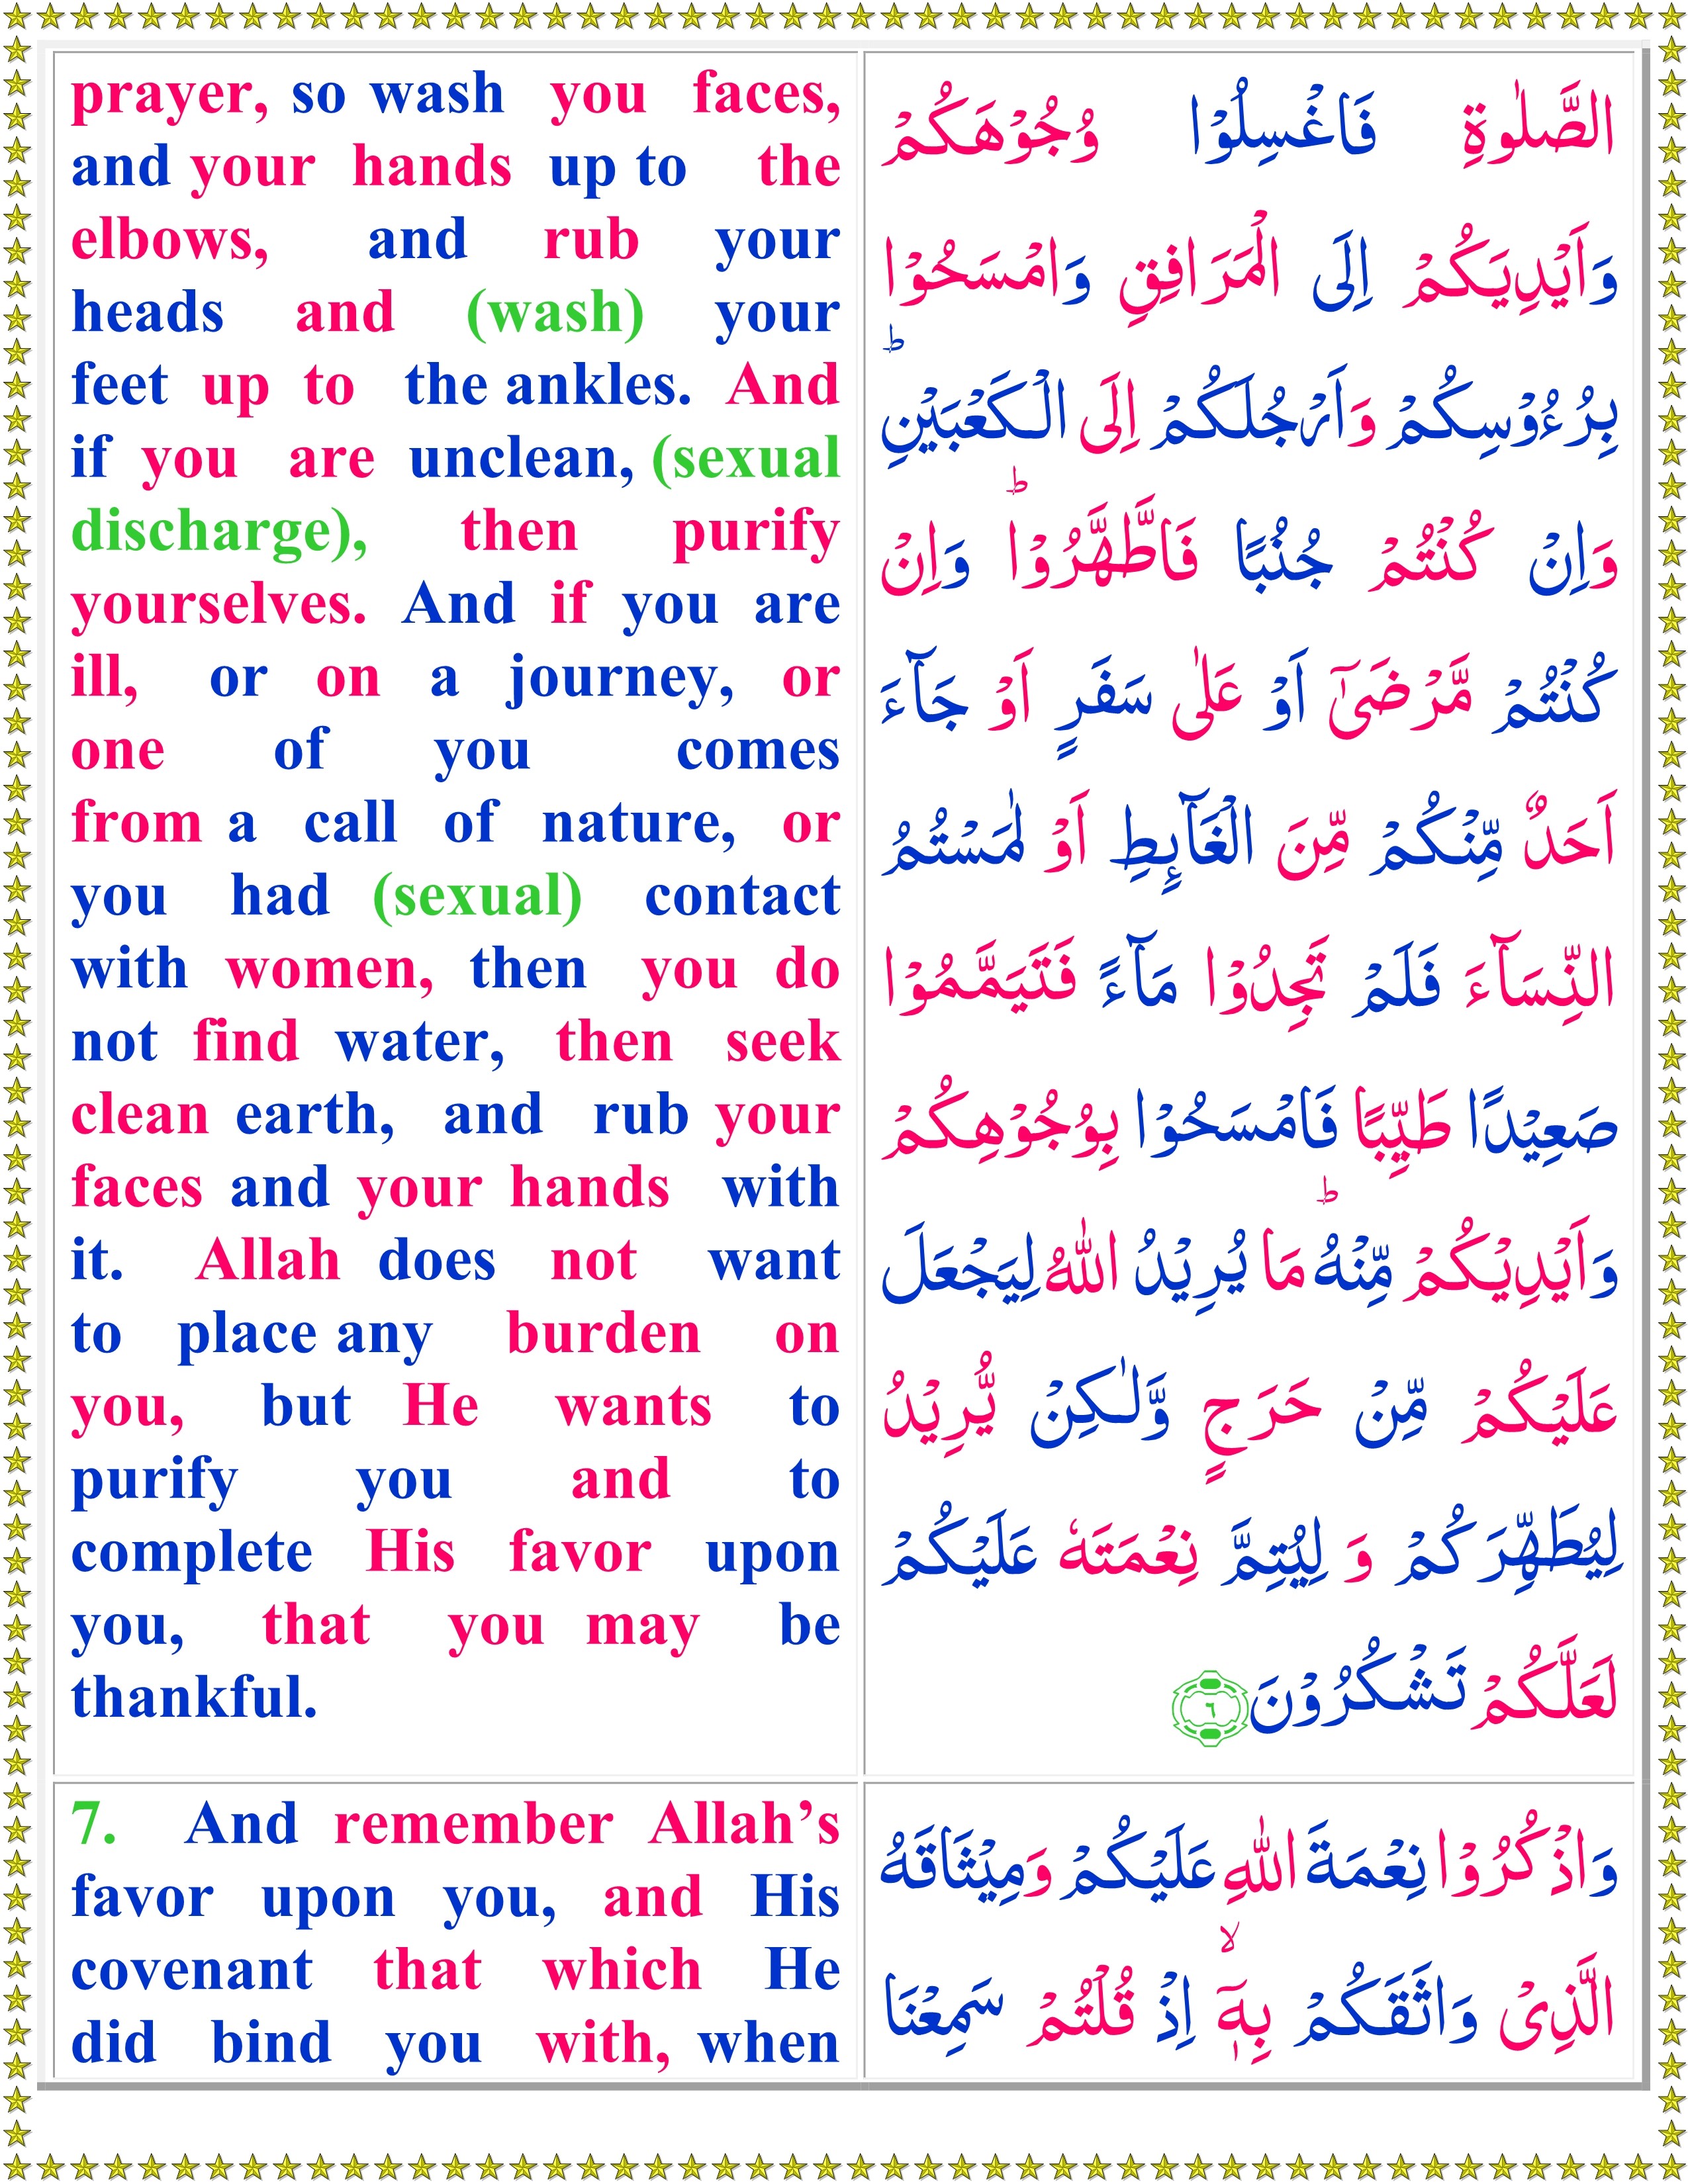 prayer, so wash you faces,
and your hands up to the
elbows, and rub your
heads and (wash) your
feet up to the ankles. And
if you are unclean, (sexual
discharge), then purify
yourselves. And if you are
ill, or on a journey, or
one of you comes
from a call of nature, or
you had (sexual) contact
with women, then you do
not find water, then seek
clean earth, and rub your
faces and your hands with
it. Allah does not want
to place any burden on
you, but He wants to
purify you and to
complete His favor upon
you, that you may be
thankful.
الصَّلٰوةِ فَاغْسِلُوْا وُجُوْهَكُمْ
وَاَيْدِيَكُمْ اِلَى الْمَرَافِقِ وَامْسَحُوْا
بِرُءُوْسِكُمْ وَاَرْجُلَكُمْ اِلَى الْكَعْبَيْنِ ؕ
وَاِنْ كُنْتُمْ جُنُبًا فَاطَّهَّرُوْا ؕ وَاِنْ
كُنْتُمْ مَّرْضَىٰۤ اَوْ عَلٰى سَفَرٍ اَوْ جَآءَ
اَحَدٌ مِّنْكُمْ مِّنَ الْغَآٮِٕطِ اَوْ لٰمَسْتُمُ
النِّسَآءَ فَلَمْ تَجِدُوْا مَآءً فَتَيَمَّمُوْا
صَعِيْدًا طَيِّبًا فَامْسَحُوْا بِوُجُوْهِكُمْ
وَاَيْدِيْكُمْ مِّنْهُ ؕ مَا يُرِيْدُ اللّٰهُ لِيَجْعَلَ
عَلَيْكُمْ مِّنْ حَرَجٍ وَّلٰـكِنْ يُّرِيْدُ
لِيُطَهِّرَكُمْ وَ لِيُتِمَّ نِعْمَتَهٗ عَلَيْكُمْ
لَعَلَّكُمْ تَشْكُرُوْنَ ٦
7. And remember Allah’s
favor upon you, and His
covenant that which He
did bind you with, when
وَاذْكُرُوْا نِعْمَةَ اللّٰهِ عَلَيْكُمْ وَمِيْثَاقَهُ
الَّذِىْ وَاثَقَكُمْ بِهٖۤ ۙ اِذْ قُلْتُمْ سَمِعْنَا